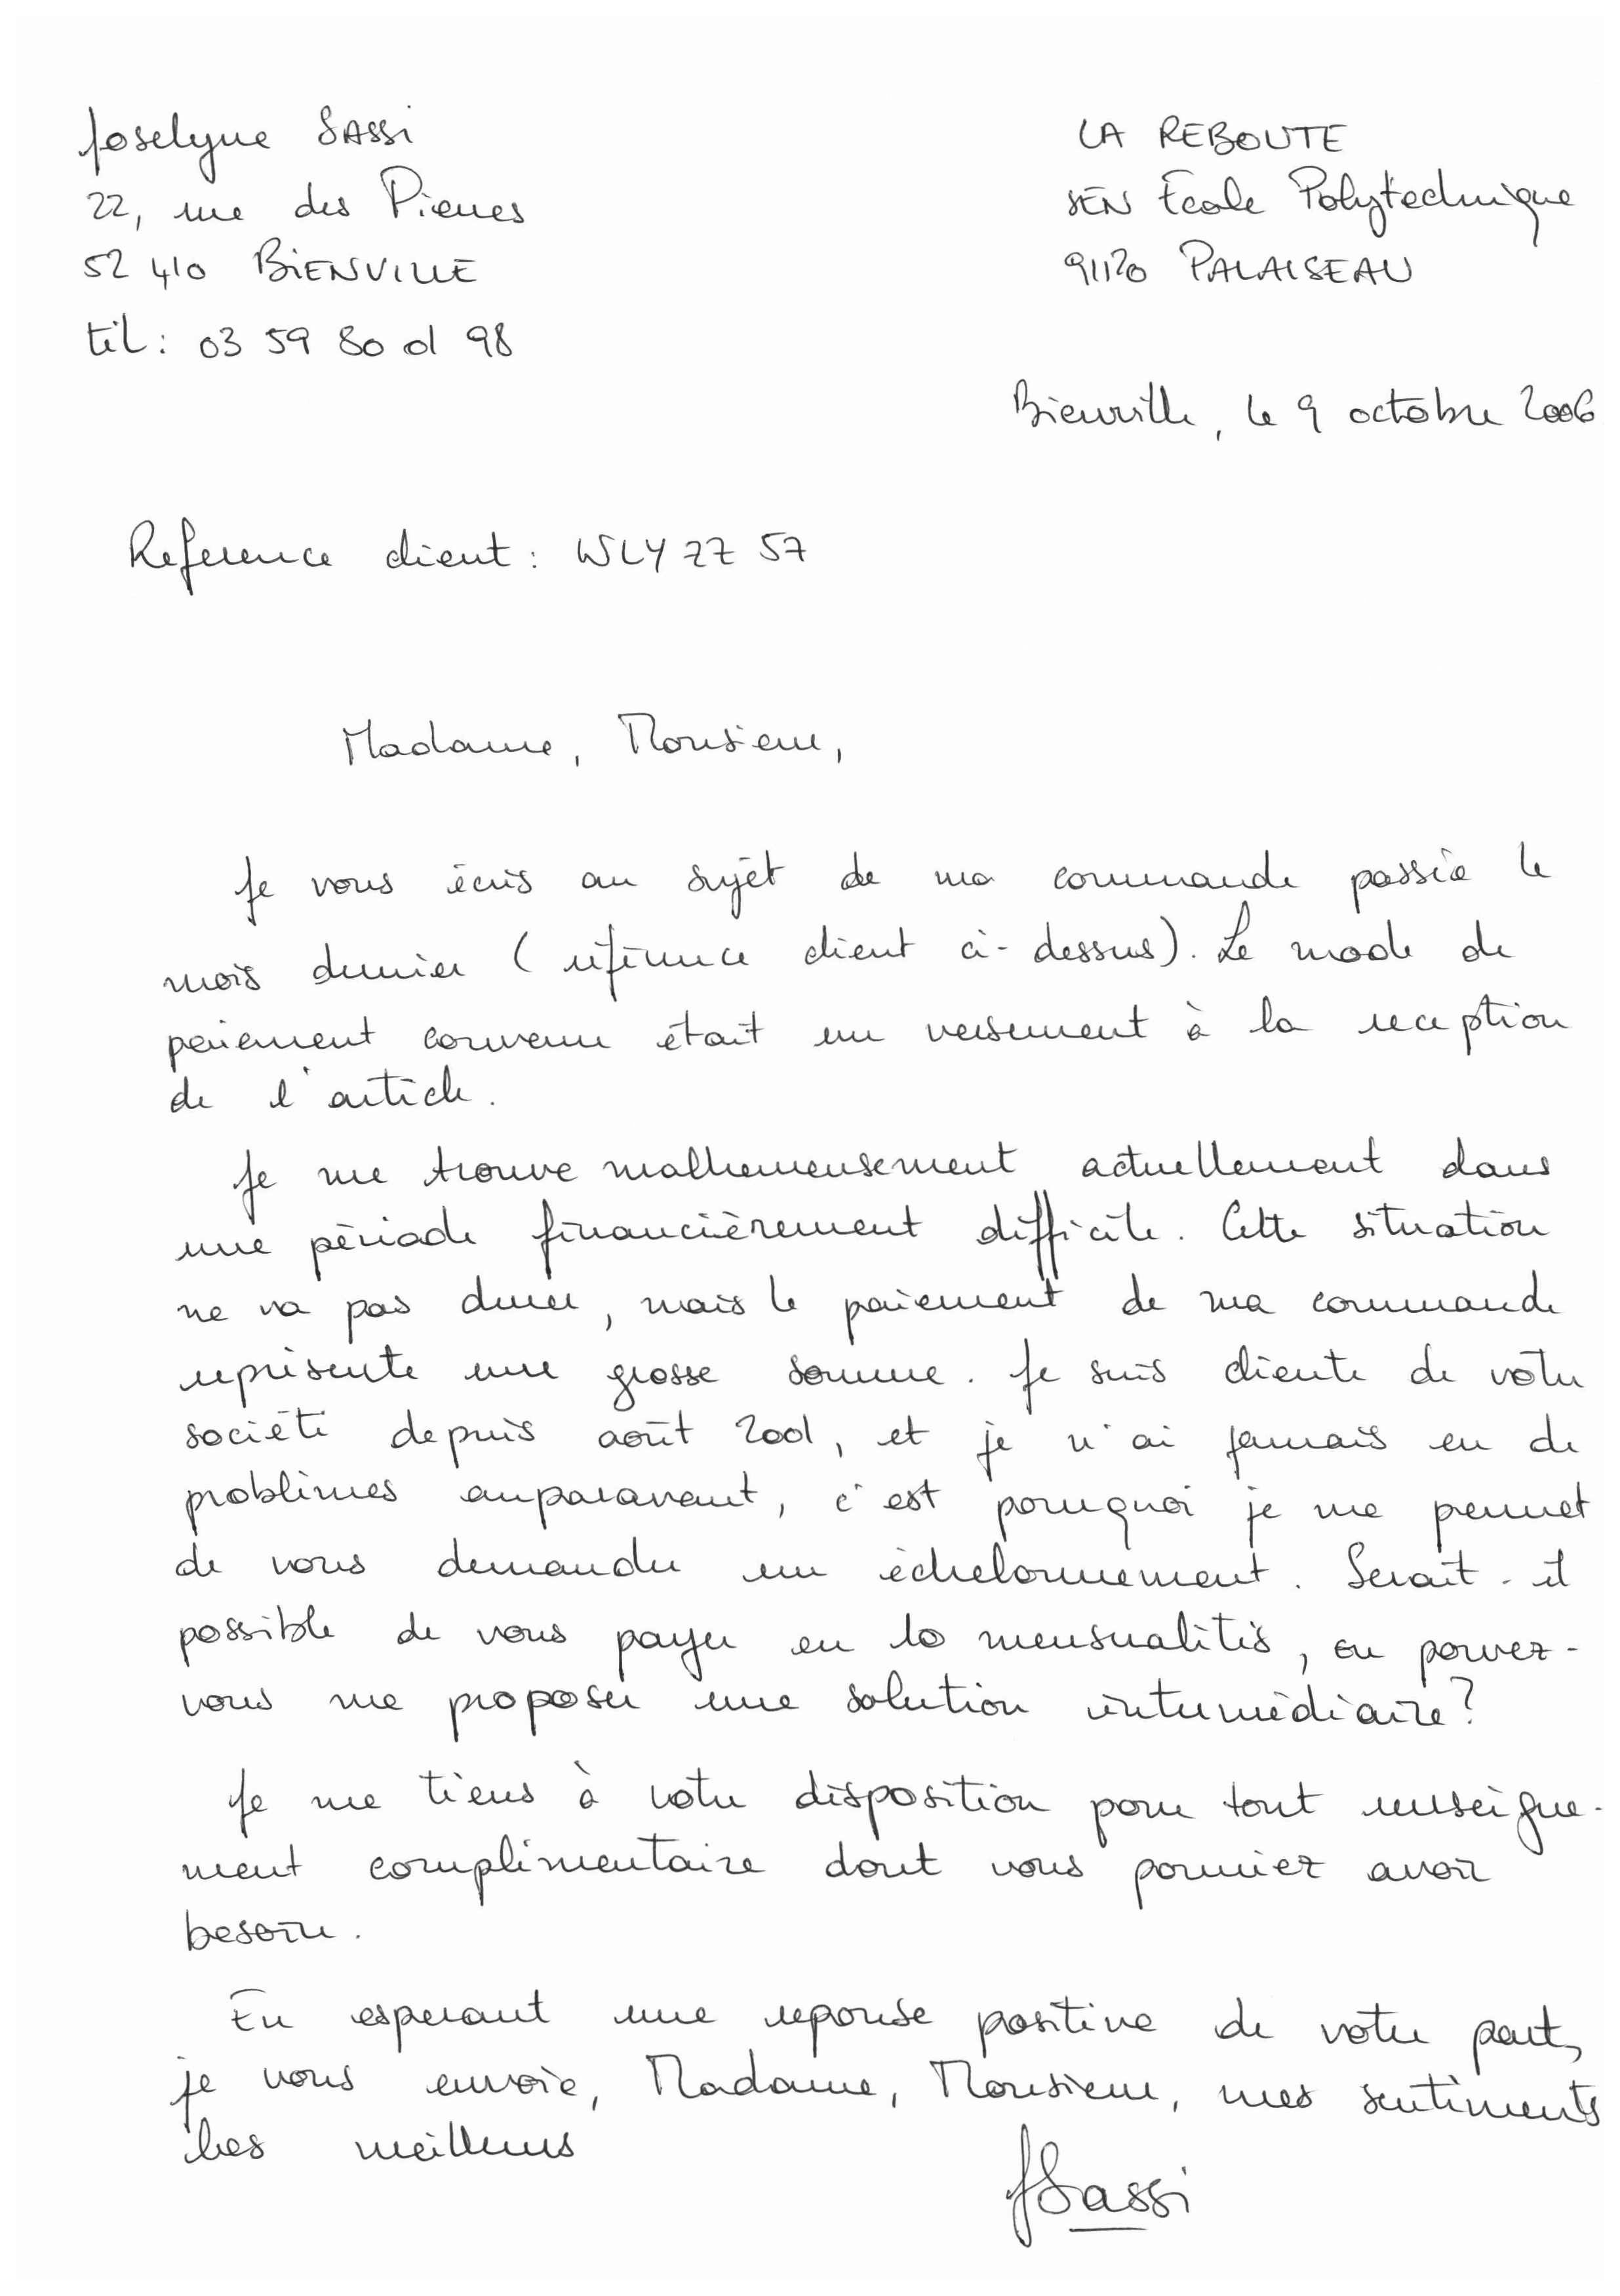 Joselyne SASSi
22, rue des Pierres
52 410 BiENViLLE
tél : 03 59 80 01 98
LA REBOUTE
SEN École Polytechnique
91120 PALAISEAU
Bienville, le 9 octobre 2006
Reference client : WLYZZ 57
Madame, Monsieur,
Je vous écris au sujet de ma commande passée le
mois dernier ( référence client ci-dessus). Le mode de
paiement convenu était un versement à la reception
de l'article.
Je me trouve malheureusement actuellement dans
une période financièrement difficile. Cette situation
ne va pas durer, mais le paiement de ma commande
représente une grosse somme. Je suis cliente de votre
société depuis août 2001, et je n'ai jamais eu de
problèmes auparavant, c'est pourquoi je me permet
de vous demander un échelonnement. Serait-il
possible de vous payer en 10 mensualités, ou pouvez-
vous me proposer une solution intermédiaire ?
Je me tiens à votre disposition pour tout renseigne-
ment complémentaire dont vous pourriez avoir
besoin.
En esperant une reponse positive de votre part,
je vous envoie, Madame, Monsieur, mes sentiments
les meilleurs
JSassi